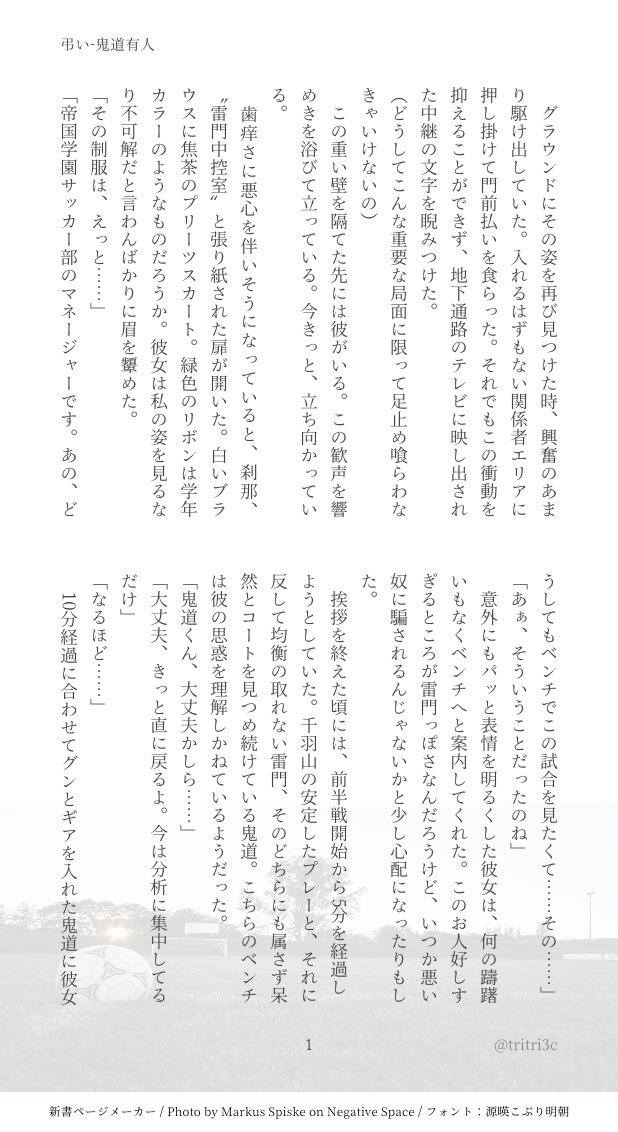 弔い-鬼道有人
　グラウンドにその姿を再び見つけた時、興奮のあま
り駆け出していた。入れるはずもない関係者エリアに
押し掛けて門前払いを食らった。それでもこの衝動を
抑えることができず、地下通路のテレビに映し出され
た中継の文字を睨みつけた。
（どうしてこんな重要な局面に限って足止め喰らわな
きゃいけないの）
　この重い壁を隔てた先には彼がいる。この歓声を響
めきを浴びて立っている。今きっと、立ち向かってい
る。
　歯痒さに悪心を伴いそうになっていると、刹那、
〝雷門中控室〟と張り紙された扉が開いた。白いブラ
ウスに焦茶のプリーツスカート。緑色のリボンは学年
カラーのようなものだろうか。彼女は私の姿を見るな
り不可解だと言わんばかりに眉を顰めた。
「その制服は、えっと……」
「帝国学園サッカー部のマネージャーです。あの、ど
うしてもベンチでこの試合を見たくて……その……」
「あぁ、そういうことだったのね」
　意外にもパッと表情を明るくした彼女は、何の躊躇
いもなくベンチへと案内してくれた。このお人好しす
ぎるところが雷門っぽさなんだろうけど、いつか悪い
奴に騙されるんじゃないかと少し心配になったりもし
た。
　挨拶を終えた頃には、前半戦開始から5分を経過し
ようとしていた。千羽山の安定したプレーと、それに
反して均衡の取れない雷門、そのどちらにも属さず呆
然とコートを見つめ続けている鬼道。こちらのベンチ
は彼の思惑を理解しかねているようだった。
「鬼道くん、大丈夫かしら……」
「大丈夫、きっと直に戻るよ。今は分析に集中してる
だけ」
「なるほど……」
　10分経過に合わせてグンとギアを入れた鬼道に彼女
1
@tritri3c
新書ページメーカー / Photo by Markus Spiske on Negative Space / フォント：源暎こぶり明朝